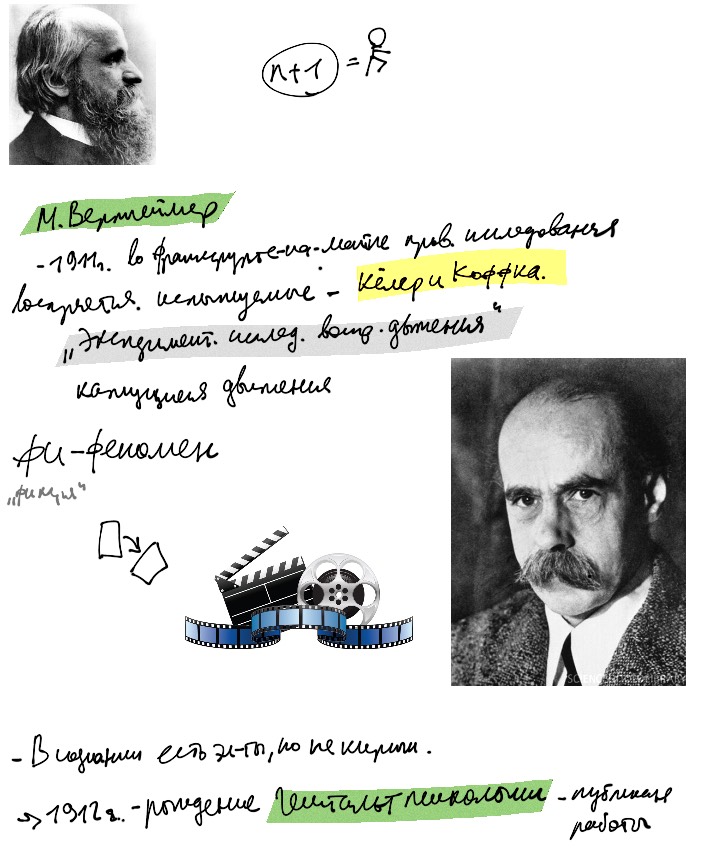 n+1 =
М. Вертгеймер
- 1911г. во Франкфурте-на-Майне пров. исследования
восприятия. испытуемые - Кёлер и Коффка.
„Эксперимент. исслед. восп. движения“
кажущиеся движения
фи-феномен
„фикция“
- В сознании есть эл-ты, но не кирпичи.
→ 1912г. - рождение Гештальтпсихологии - публикация
работы